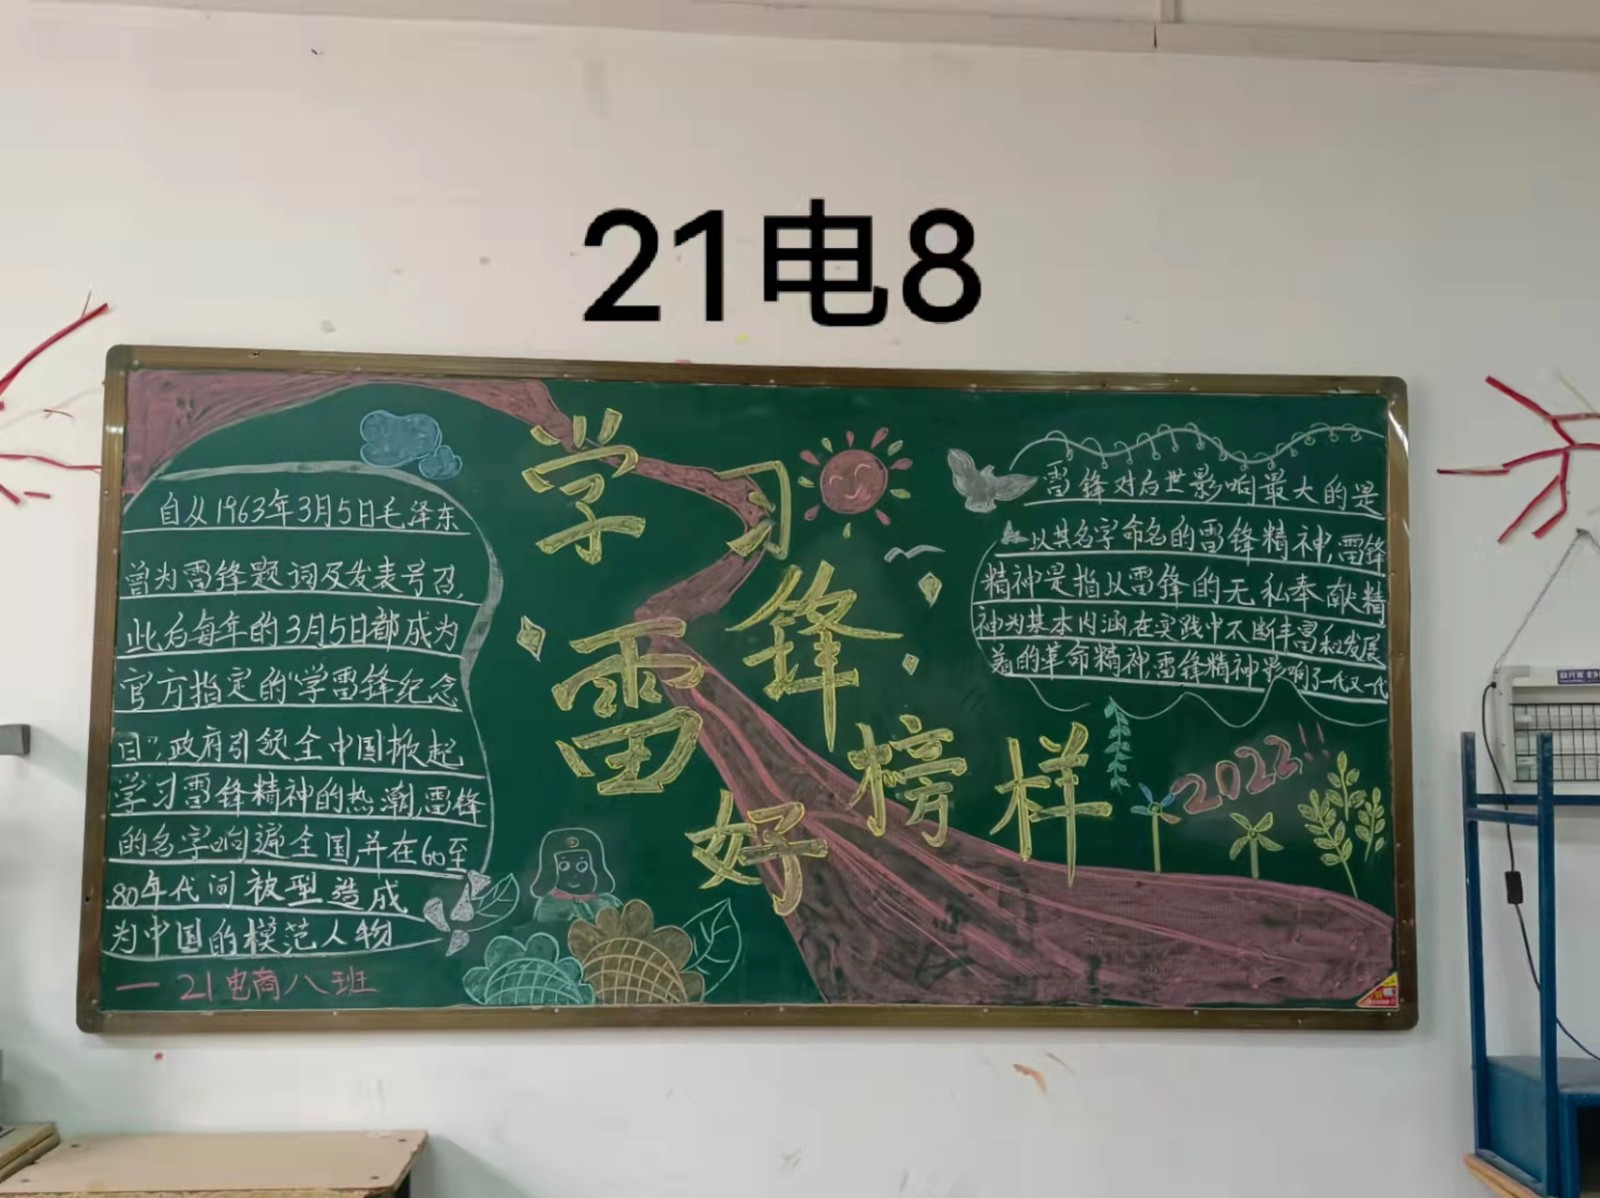 21电8
学习
雷锋
好榜样
自从1963年3月5日毛泽东
曾为雷锋题词及发表号召,
此后每年的3月5日都成为
官方指定的“学雷锋纪念
日”,政府引领全中国掀起
学习雷锋精神的热潮,雷锋
的名字响遍全国,并在60至
80年代间被型造成
为中国的模范人物
一 21电商八班
雷锋对后世影响最大的是
以其名字命名的雷锋精神,雷锋
精神是指以雷锋的无私奉献精
神为基本内涵,在实践中不断丰富和发展
着的革命精神,雷锋精神影响了一代又一代
2022!!